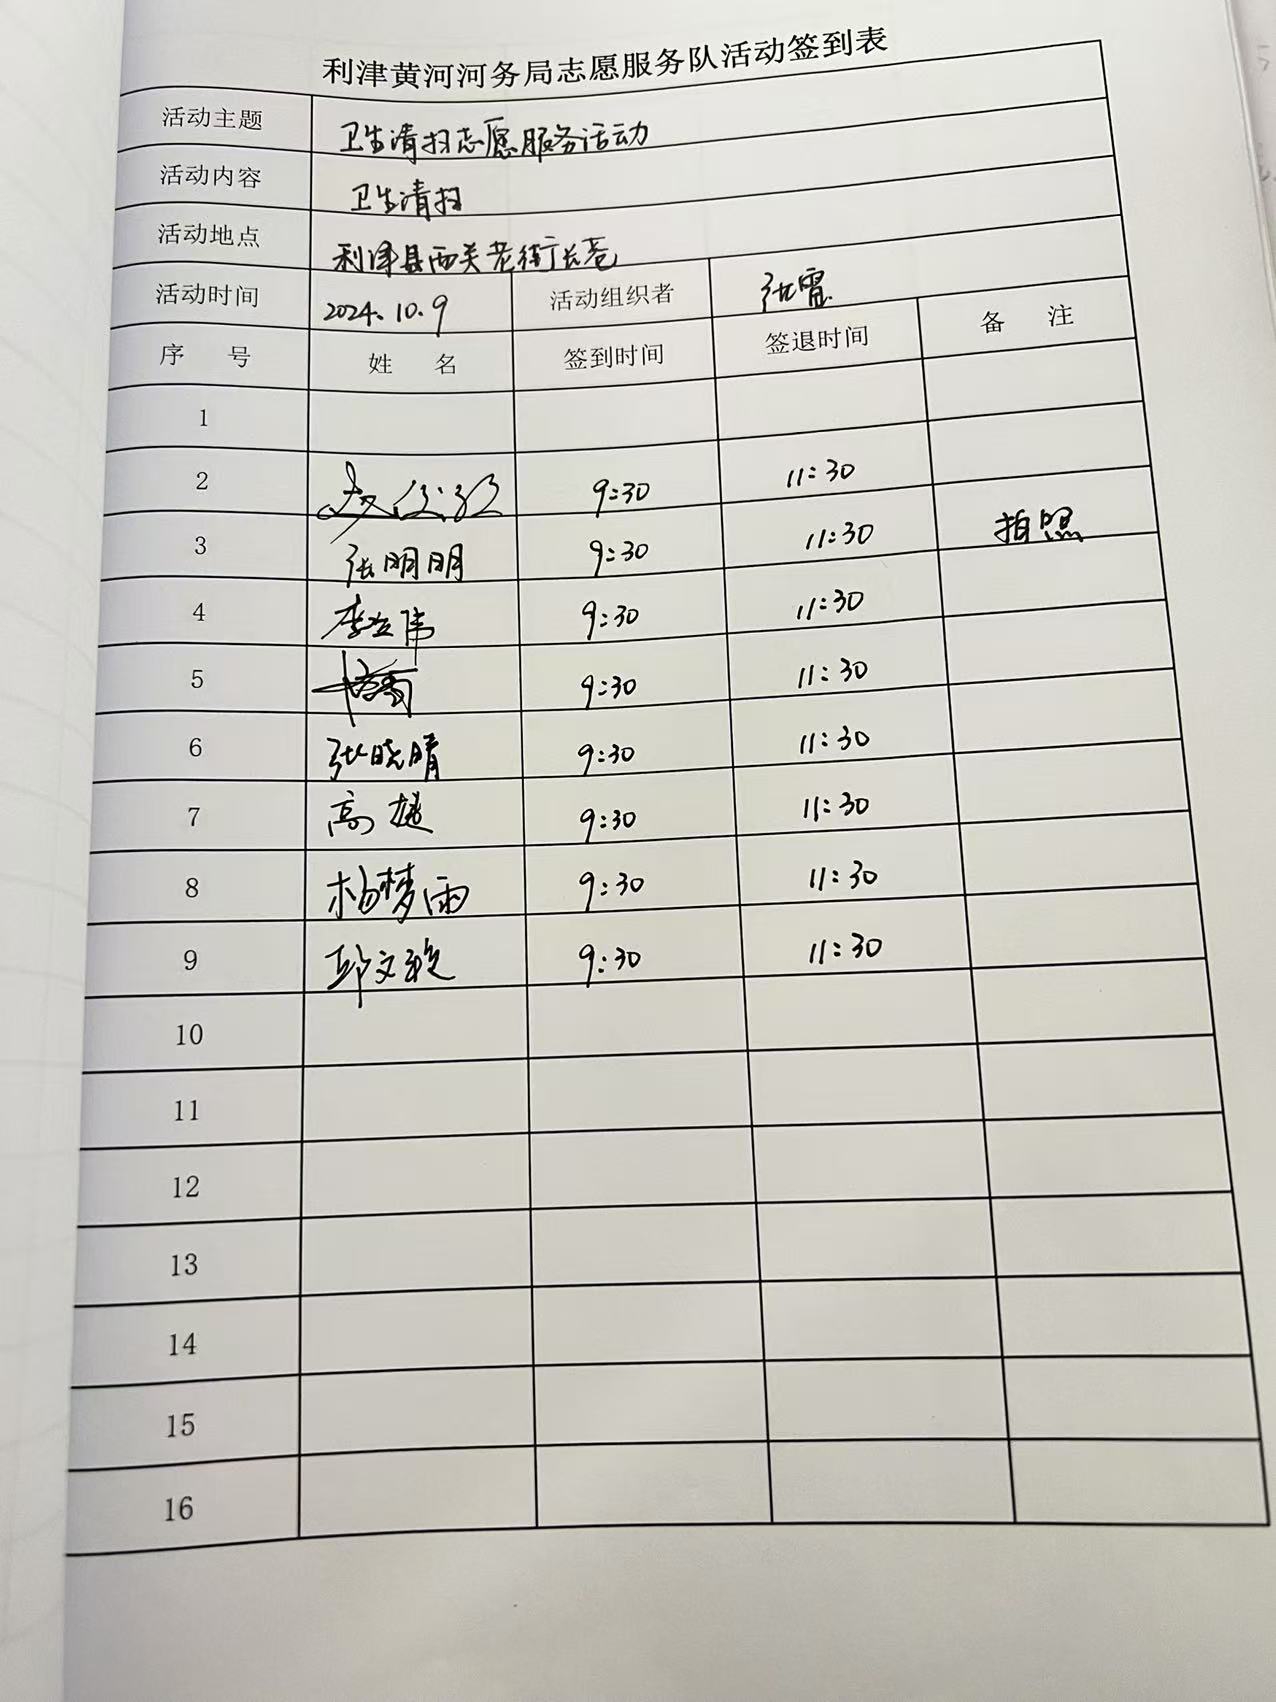 利津黄河河务局志愿服务队活动签到表
活动主题 卫生清扫志愿服务活动
活动内容 卫生清扫
活动地点 利津县西关老街长巷
活动时间 2024.10.9 活动组织者 张霄
序 号 姓 名 签到时间 签退时间 备 注
1
2 9:30 11:30
3 张明明 9:30 11:30 拍照
4 李立伟 9:30 11:30
5 9:30 11:30
6 张晓晴 9:30 11:30
7 高捷 9:30 11:30
8 杨梦雨 9:30 11:30
9 邱文璇 9:30 11:30
10
11
12
13
14
15
16